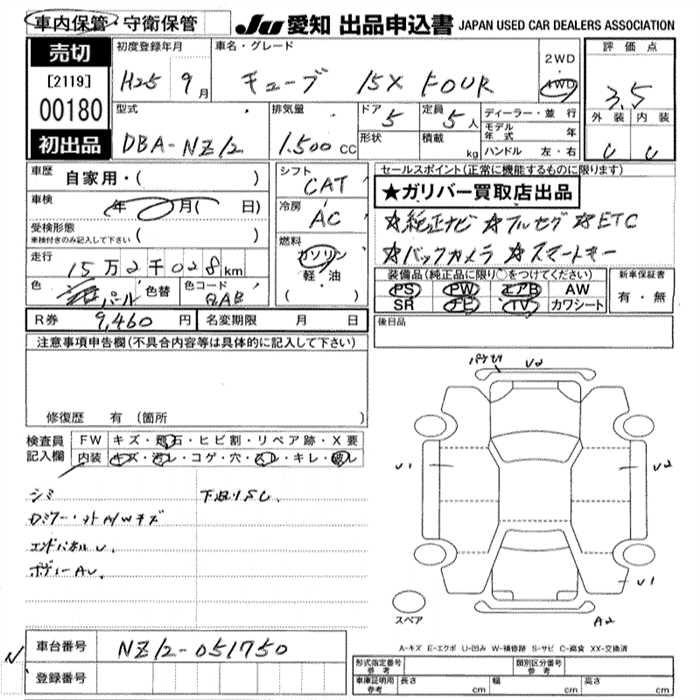 車内保管・守衛保管
JU 愛知 出品申込書 JAPAN USED CAR DEALERS ASSOCIATION
売切
[2119]
00180
初出品
初度登録年月
H25 9月
車名・グレード
キューブ 15X FOUR
2WD
4WD
評価点
3.5
外装 内装
C C
型式
DBA-NZ12
排気量
1.500 CC
ドア 5
形状
定員 5人
積載 kg
ディーラー・並行
モデル年式 年
ハンドル 左・右
車歴 自家用・( )
車検 年 月( 日)
受検形態
車検付きのみ記入して下さい ( )
走行 15万2千028km
色 パール 色替 色コード QAB
シフト
CAT
冷房
AC
燃料
ガソリン
軽・油
( )
セールスポイント(正常に機能するものに限ります)
★ガリバー買取店出品
☆純正ナビ ☆フルセグ ☆ETC
☆バックカメラ ☆スマートキー
装備品(純正品に限り○をつけてください)
PS PW エアB AW
SR ナビ TV カワシート
新車保証書
有・無
後日品
R券 9,460円 名変期限 月 日
注意事項申告欄(不具合内容等は具体的に記入して下さい)
修復歴 有 (箇所 )
検査員記入欄
FW キズ・飛石・ヒビ割・リペア跡・X要
内装 キズ・汚レ・コゲ・穴・スレ・キレ・破レ
シミ
下回りSC.
エンドパネルU.
ボディーAU
U2
U1
U2
U1
A2
スペア
車台番号 NZ12-051750
登録番号
A-キズ E-エクボ U-凹み W-補修跡 S-サビ C-腐食 XX-交換済
形式指定番号 参考
類別区分番号 参考
車庫証明用 参考 長さ cm 幅 cm 高さ cm